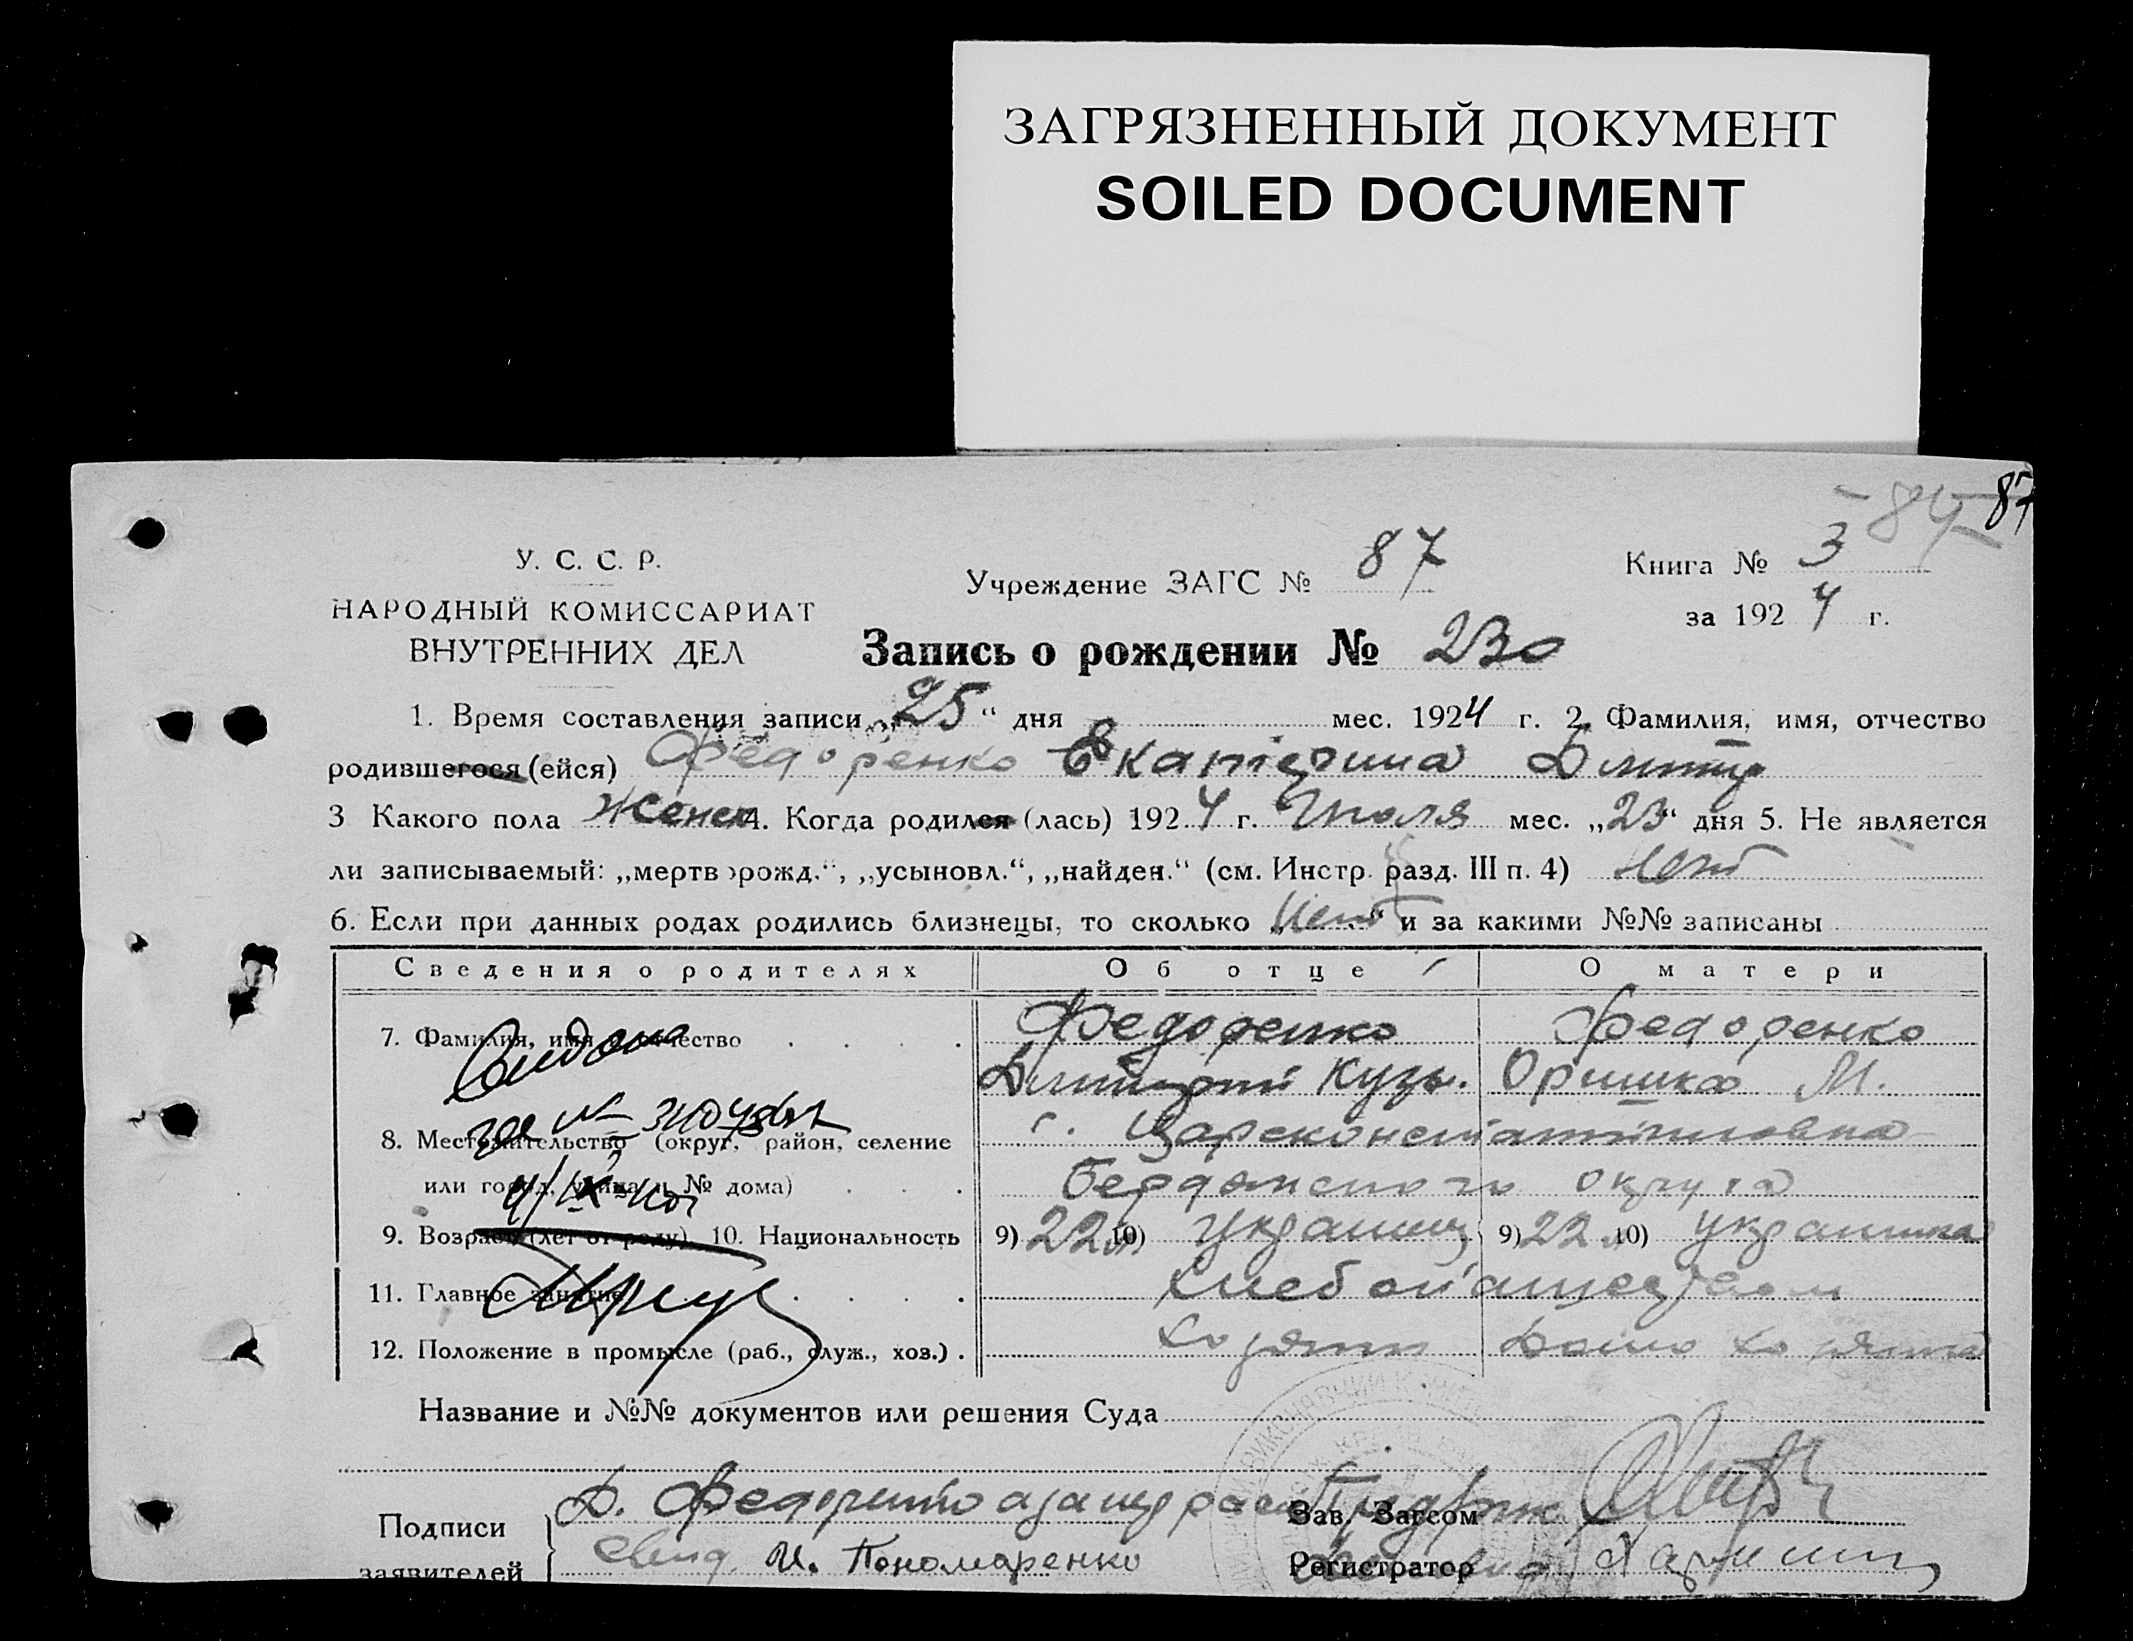 ЗАГРЯЗНЕННЫЙ ДОКУМЕНТ
SOILED DOCUMENT
84 87
У. С. С. Р.
НАРОДНЫЙ КОМИССАРИАТ
ВНУТРЕННИХ ДЕЛ
Учреждение ЗАГС № 87
Книга № 3
за 1924 г.
Запись о рождении № 230
1. Время составления записи „25“ дня мес. 1924 г. 2. Фамилия, имя, отчество
родившегося (ейся) Федоренко Екатерина Дмитр
3 Какого пола Женск 4. Когда родился (лась) 1924 г. Июля мес. „23“ дня 5. Не является
ли записываемый: „мертворожд.“, „усыновл.“, „найден.“ (см. Инстр. разд. III п. 4) нет
6. Если при данных родах родились близнецы, то сколько „Нет“ и за какими №№ записаны
Сведения о родителях Об отце О матери
7. Фамилия, имя и отчество Федоренко Федоренко
Дмитрий Кузь. Оришка М.
8. Местожительство (округ, район, селение с. Царсконстантиновка
или город, улица и № дома) Бердянского округа
9. Возраст (лет от роду) 10. Национальность 9) 22 л 10) украинец 9) 22 л 10) украинка
11. Главное занятие хлебопашеством
12. Положение в промысле (раб., служ., хоз.) хозяин хозяйка
Название и №№ документов или решения Суда
Подписи Д. Федоренко Зав. Загсом
заявителей И. Пономаренко Регистратор